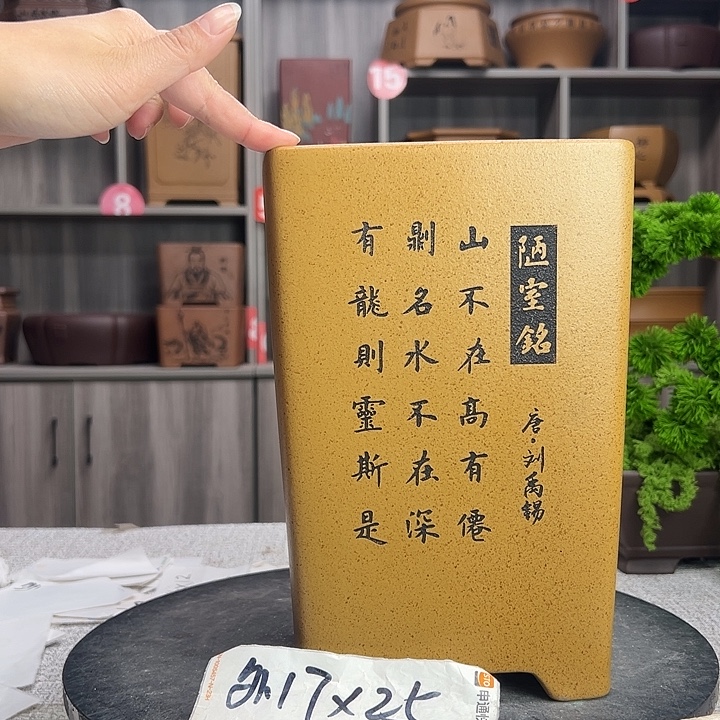 陋室銘
唐·刘禹錫
山不在高有僊
剿名水不在深
有龍則靈斯是
外17×25
申通
15
8